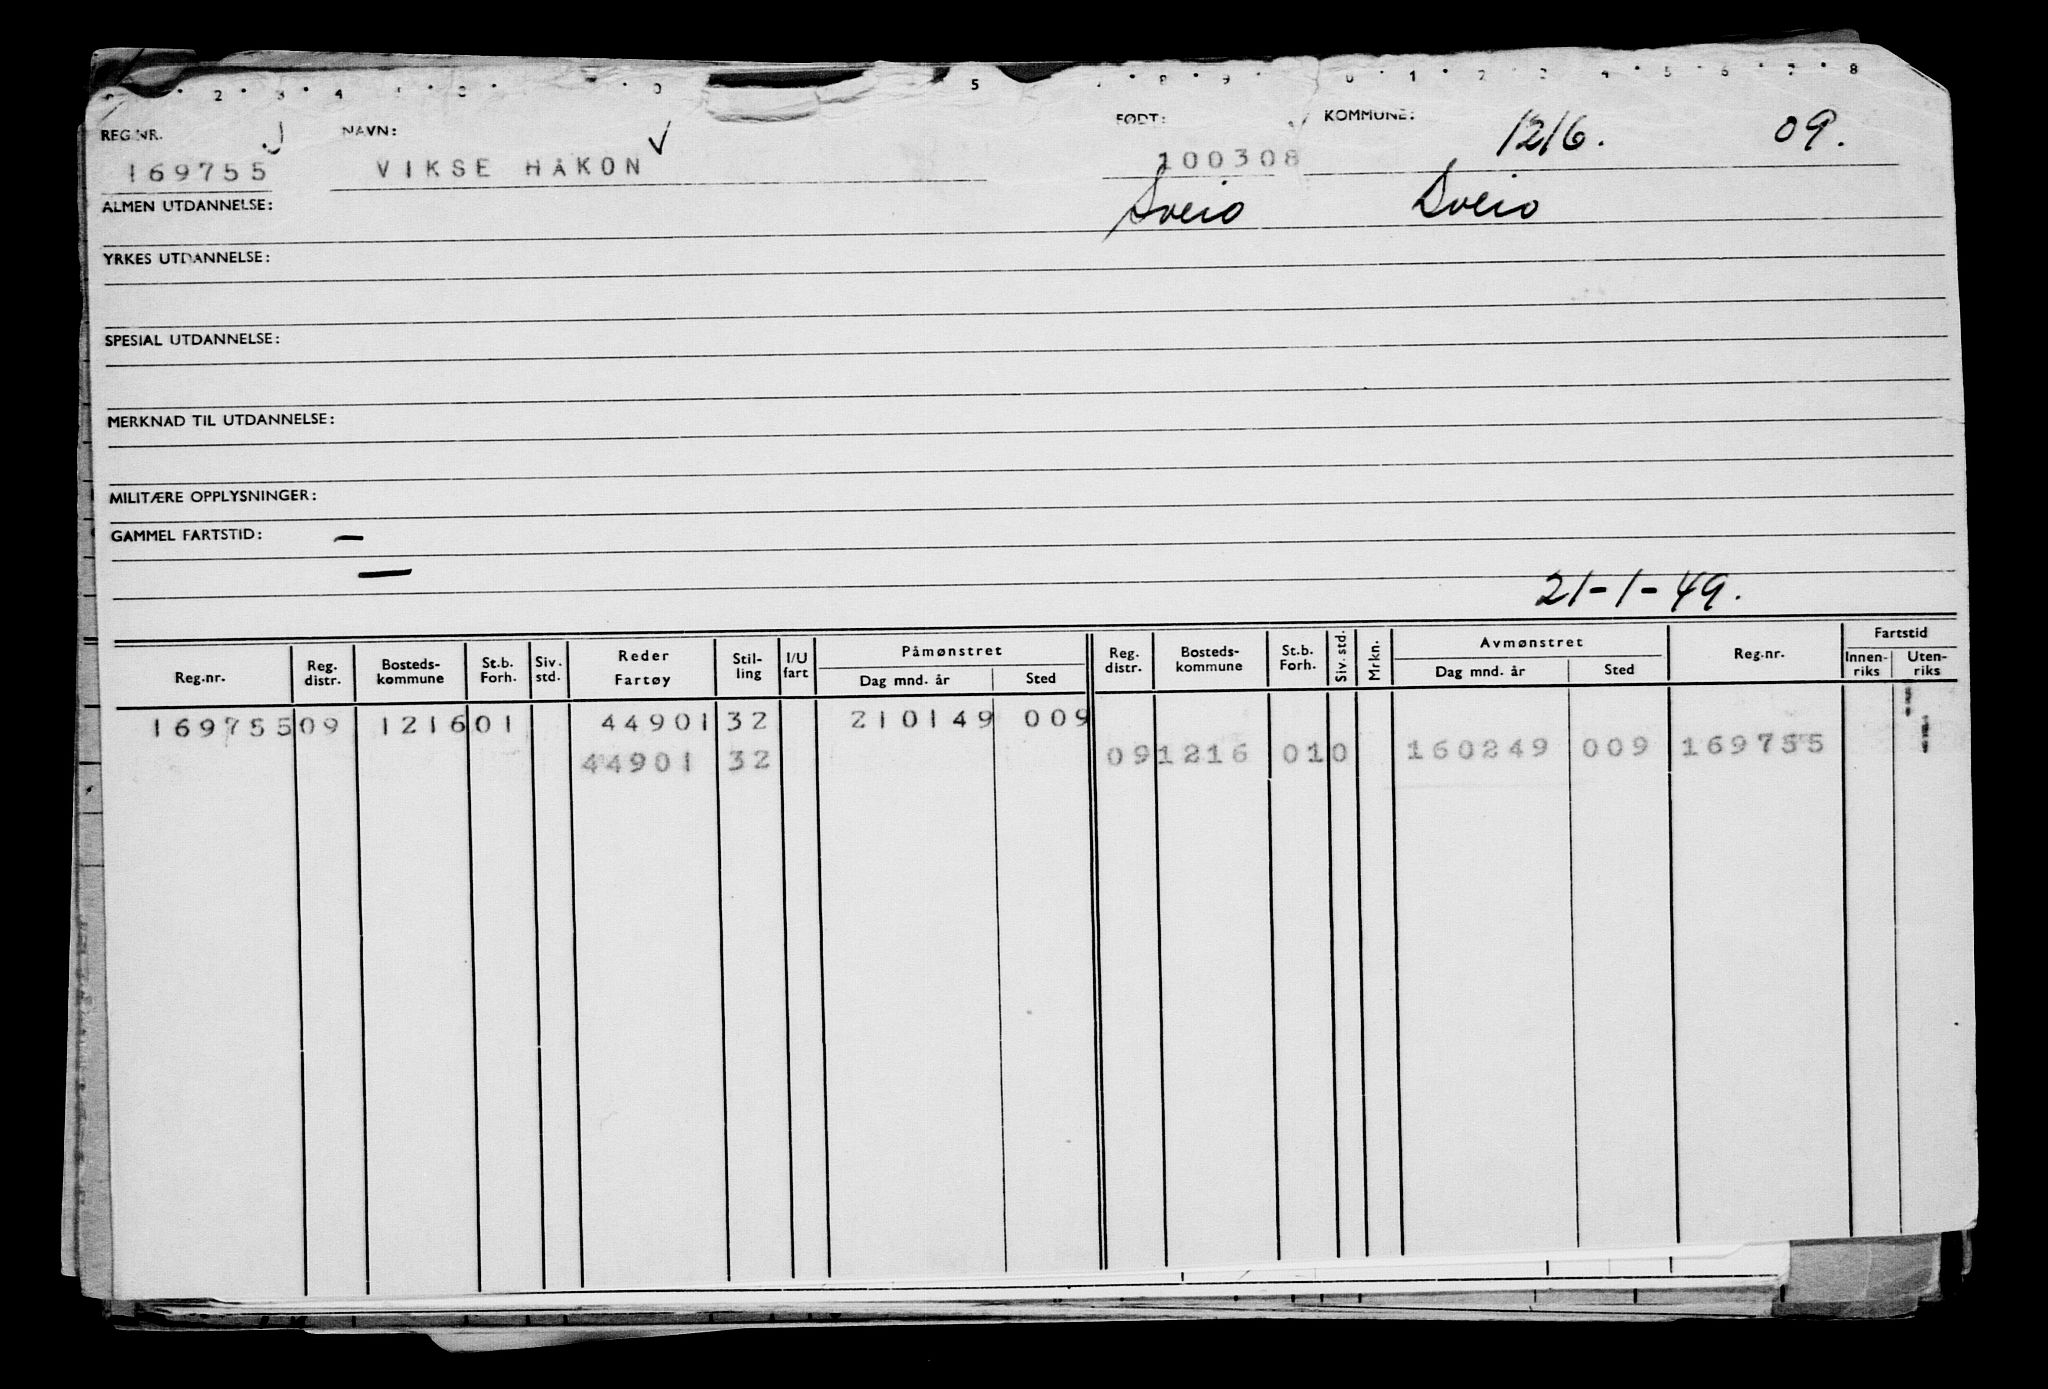 REG.NR. NAVN: FØDT: KOMMUNE: 1216. 09.
169755 VIKSE HÅKON 100308
ALMEN UTDANNELSE: Sveio Sveio
YRKES UTDANNELSE:
SPESIAL UTDANNELSE:
MERKNAD TIL UTDANNELSE:
MILITÆRE OPPLYSNINGER:
GAMMEL FARTSTID: —
—
21-1-49.
Reg.nr. Reg. distr. Bosteds-kommune St.b. Forh. Siv. std. Reder Fartøy Stil-ling I/U fart Påmønstret Dag mnd. år Sted Reg. distr. Bosteds-kommune St.b. Forh. Siv. std. Mrkn. Avmønstret Dag mnd. år Sted Reg.nr. Fartstid Innen-riks Uten-riks
169755 09 1216 01 44901 32 210149 009
44901 32 09 1216 01 0 160249 009 169755